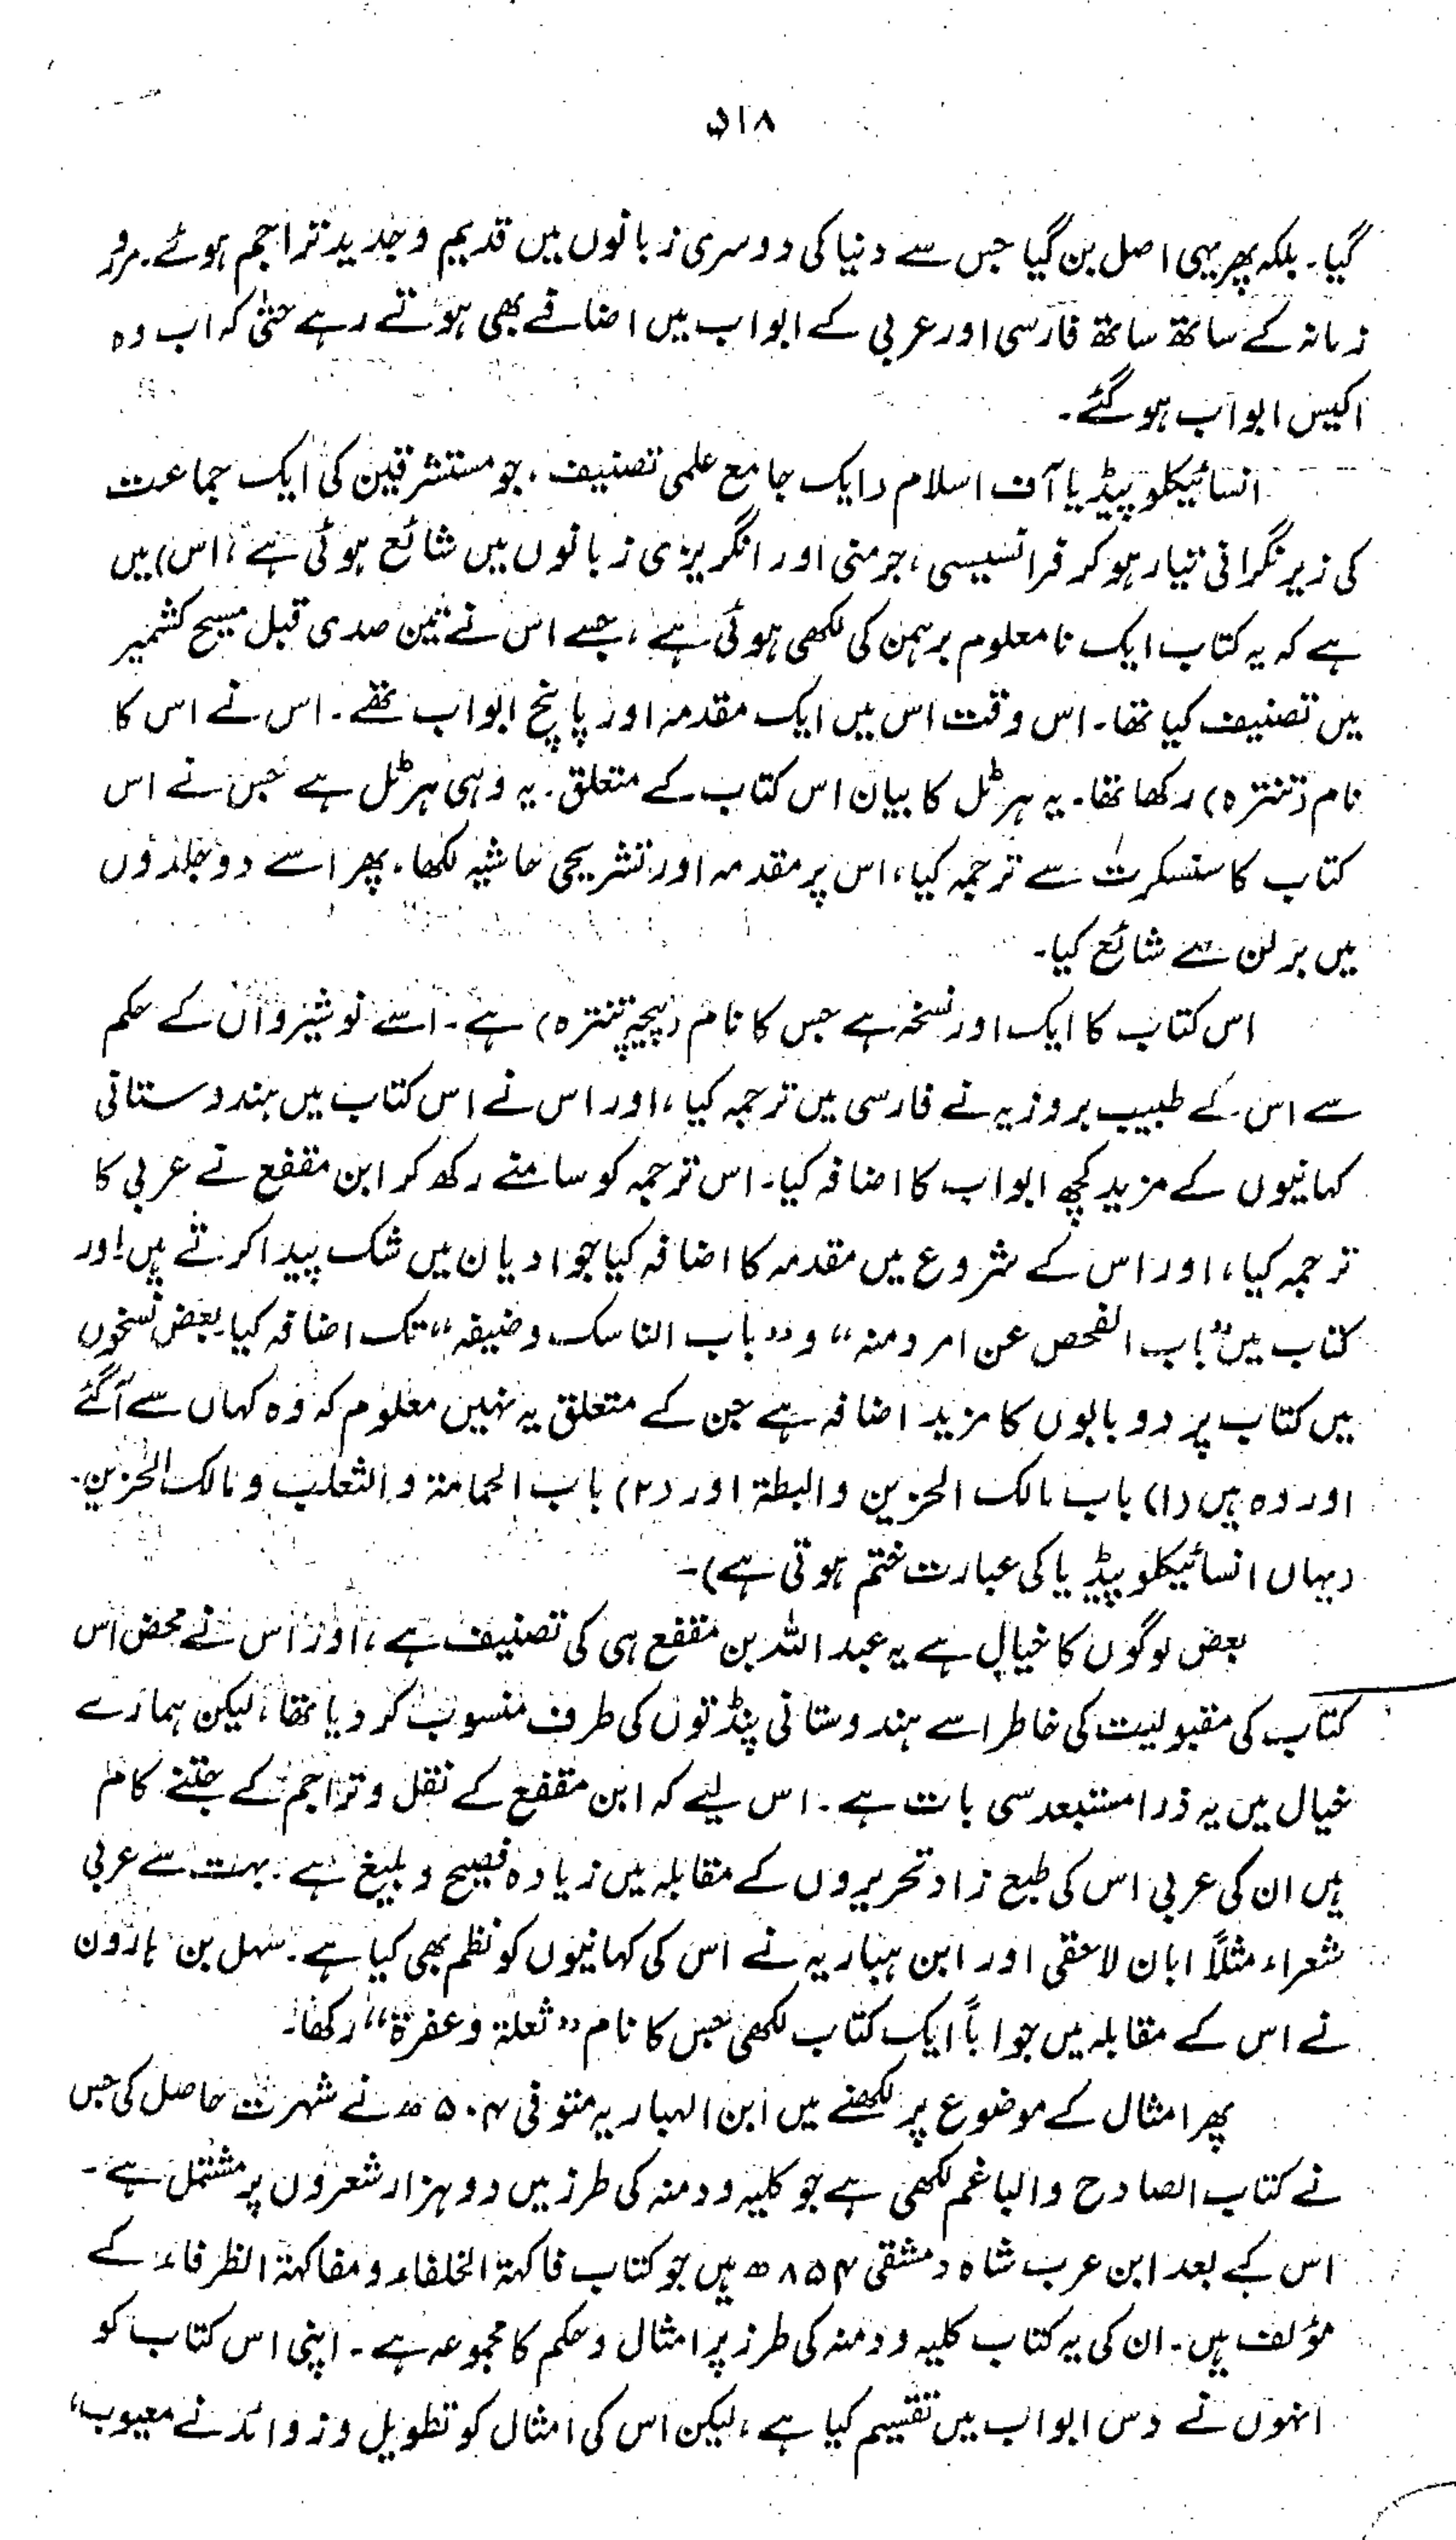 ۵۱۸
گیا۔ بلکہ پھر یہی اصل بن گیا جس سے دنیا کی دوسری زبانوں میں قدیم و جدید تراجم ہوئے۔ مرورِ
زمانہ کے ساتھ ساتھ فارسی اور عربی کے ابواب میں اضافے بھی ہوتے رہے حتیٰ کہ اب وہ
اکیس ابواب ہو گئے۔
انسائیکلوپیڈیا آف اسلام (ایک جامع علمی تصنیف، جو مستشرقین کی ایک جماعت
کی زیر نگرانی تیار ہو کر فرانسیسی، جرمنی اور انگریزی زبانوں میں شائع ہوئی ہے، اس) میں
ہے کہ یہ کتاب ایک نامعلوم برہمن کی لکھی ہوئی ہے، جسے اس نے تین صدی قبل مسیح کشمیر
میں تصنیف کیا تھا۔ اس وقت اس میں ایک مقدمہ اور پانچ ابواب تھے۔ اس نے اس کا
نام (تنترہ) رکھا تھا۔ یہ ہرٹل کا بیان اس کتاب کے متعلق۔ یہ وہی ہرٹل ہے جس نے اس
کتاب کا سنسکرت سے ترجمہ کیا، اس پر مقدمہ اور تشریحی حاشیہ لکھا، پھر اسے دو جلدوں
میں برلن سے شائع کیا۔
اس کتاب کا ایک اور نسخہ ہے جس کا نام (پنچہ تنترہ) ہے۔ اسے نوشیرواں کے حکم
سے اس کے طبیب بروزیہ نے فارسی میں ترجمہ کیا، اور اس نے اس کتاب میں ہندوستانی
کہانیوں کے مزید کچھ ابواب کا اضافہ کیا۔ اس ترجمہ کو سامنے رکھ کر ابن مقفع نے عربی کا
ترجمہ کیا، اور اس کے شروع میں مقدمہ کا اضافہ کیا جو ادیان میں شک پیدا کرتے ہیں اور
کتاب میں "باب الفحص عن امر دمنہ" و "باب الناسک وضیفہ" تک اضافہ کیا۔ بعض نسخوں
میں کتاب پر دو بابوں کا مزید اضافہ ہے جن کے متعلق یہ نہیں معلوم کہ وہ کہاں سے آگئے
اور وہ ہیں (۱) باب مالک الحزین والبطۃ اور (۲) باب الحمامۃ والثعلب و مالک الحزین۔
(یہاں انسائیکلوپیڈیا کی عبارت ختم ہوتی ہے)۔
بعض لوگوں کا خیال ہے یہ عبداللہ بن مقفع ہی کی تصنیف ہے، اور اس نے محض اس
کتاب کی مقبولیت کی خاطر اسے ہندوستانی پنڈتوں کی طرف منسوب کر دیا تھا، لیکن ہمارے
خیال میں یہ ذرا مستبعد سی بات ہے۔ اس لیے کہ ابن مقفع کے نقل و تراجم کے جتنے کام
ہیں ان کی عربی اس کی طبع زاد تحریروں کے مقابلہ میں زیادہ فصیح و بلیغ ہے۔ بہت سے عربی
شعراء مثلاً ابان لاحقی اور ابن ہباریہ نے اس کی کہانیوں کو نظم بھی کیا ہے۔ سہل بن ہارون
نے اس کے مقابلہ میں جواباً ایک کتاب لکھی جس کا نام "ثعلۃ وعفرۃ" رکھا۔
پھر امثال کے موضوع پر لکھنے میں ابن الہباریہ متوفی ۵۰۴ھ نے شہرت حاصل کی جس
نے کتاب الصادح والباغم لکھی ہے جو کلیہ ودمنہ کی طرز میں دو ہزار شعروں پر مشتمل ہے۔
اس کے بعد ابن عرب شاہ دمشقی ۸۵۴ھ ہیں جو کتاب فاکہۃ الخلفاء و مفاکہۃ الظرفاء کے
مؤلف ہیں۔ ان کی یہ کتاب کلیہ و دمنہ کی طرز پر امثال و حکم کا مجموعہ ہے۔ اپنی اس کتاب کو
انہوں نے دس ابواب میں تقسیم کیا ہے، لیکن اس کی امثال کو تطویل و زوائد نے معیوب،